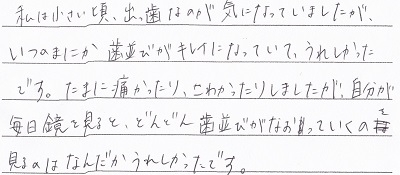 私は小さい頃、出っ歯なのが気になっていましたが、
いつのまにか歯並びがキレイになっていて、うれしかった
です。たまに痛かったり、こわかったりしましたが、自分が
毎日鏡を見ると、どんどん歯並びがなおっていくのを
見るのはなんだかうれしかったです。